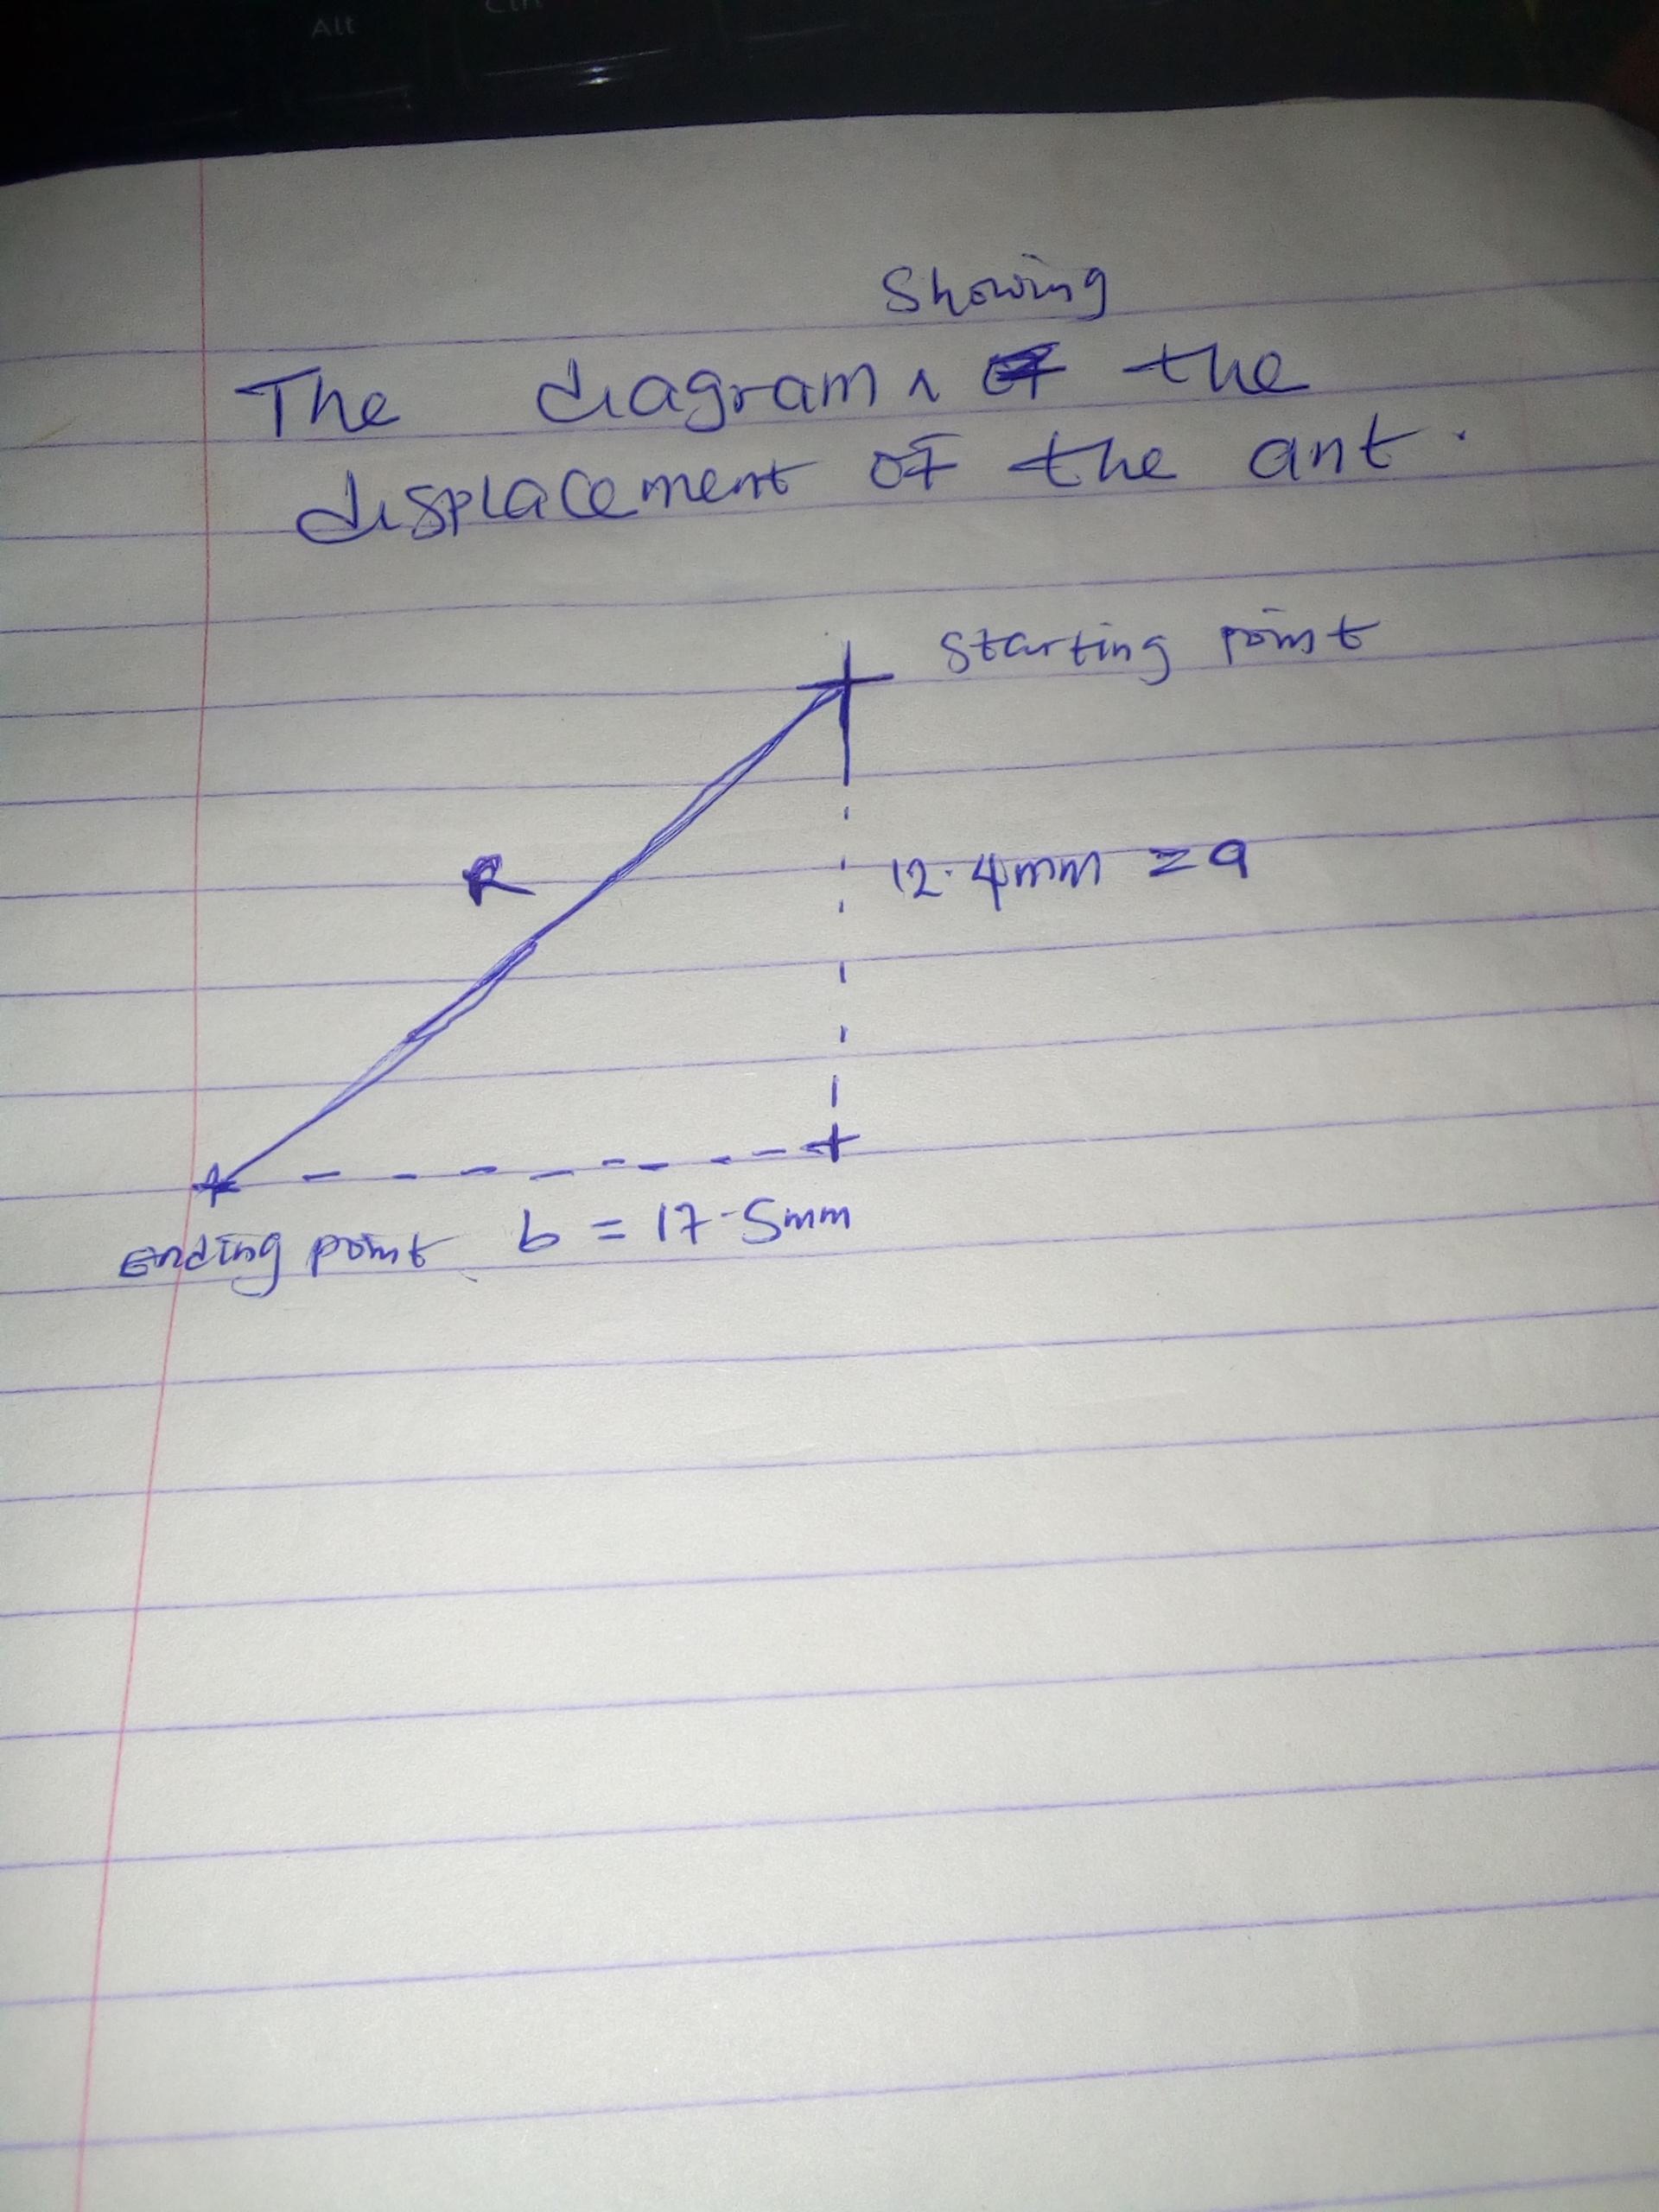 Alt
Showing
The diagram ^ the
displacement of the ant.
Starting point
R
12.4mm = a
Ending point b = 17.5mm